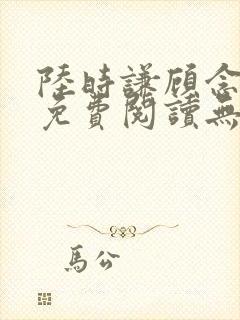 陸時謙顧念
免費閱讀無
馬公